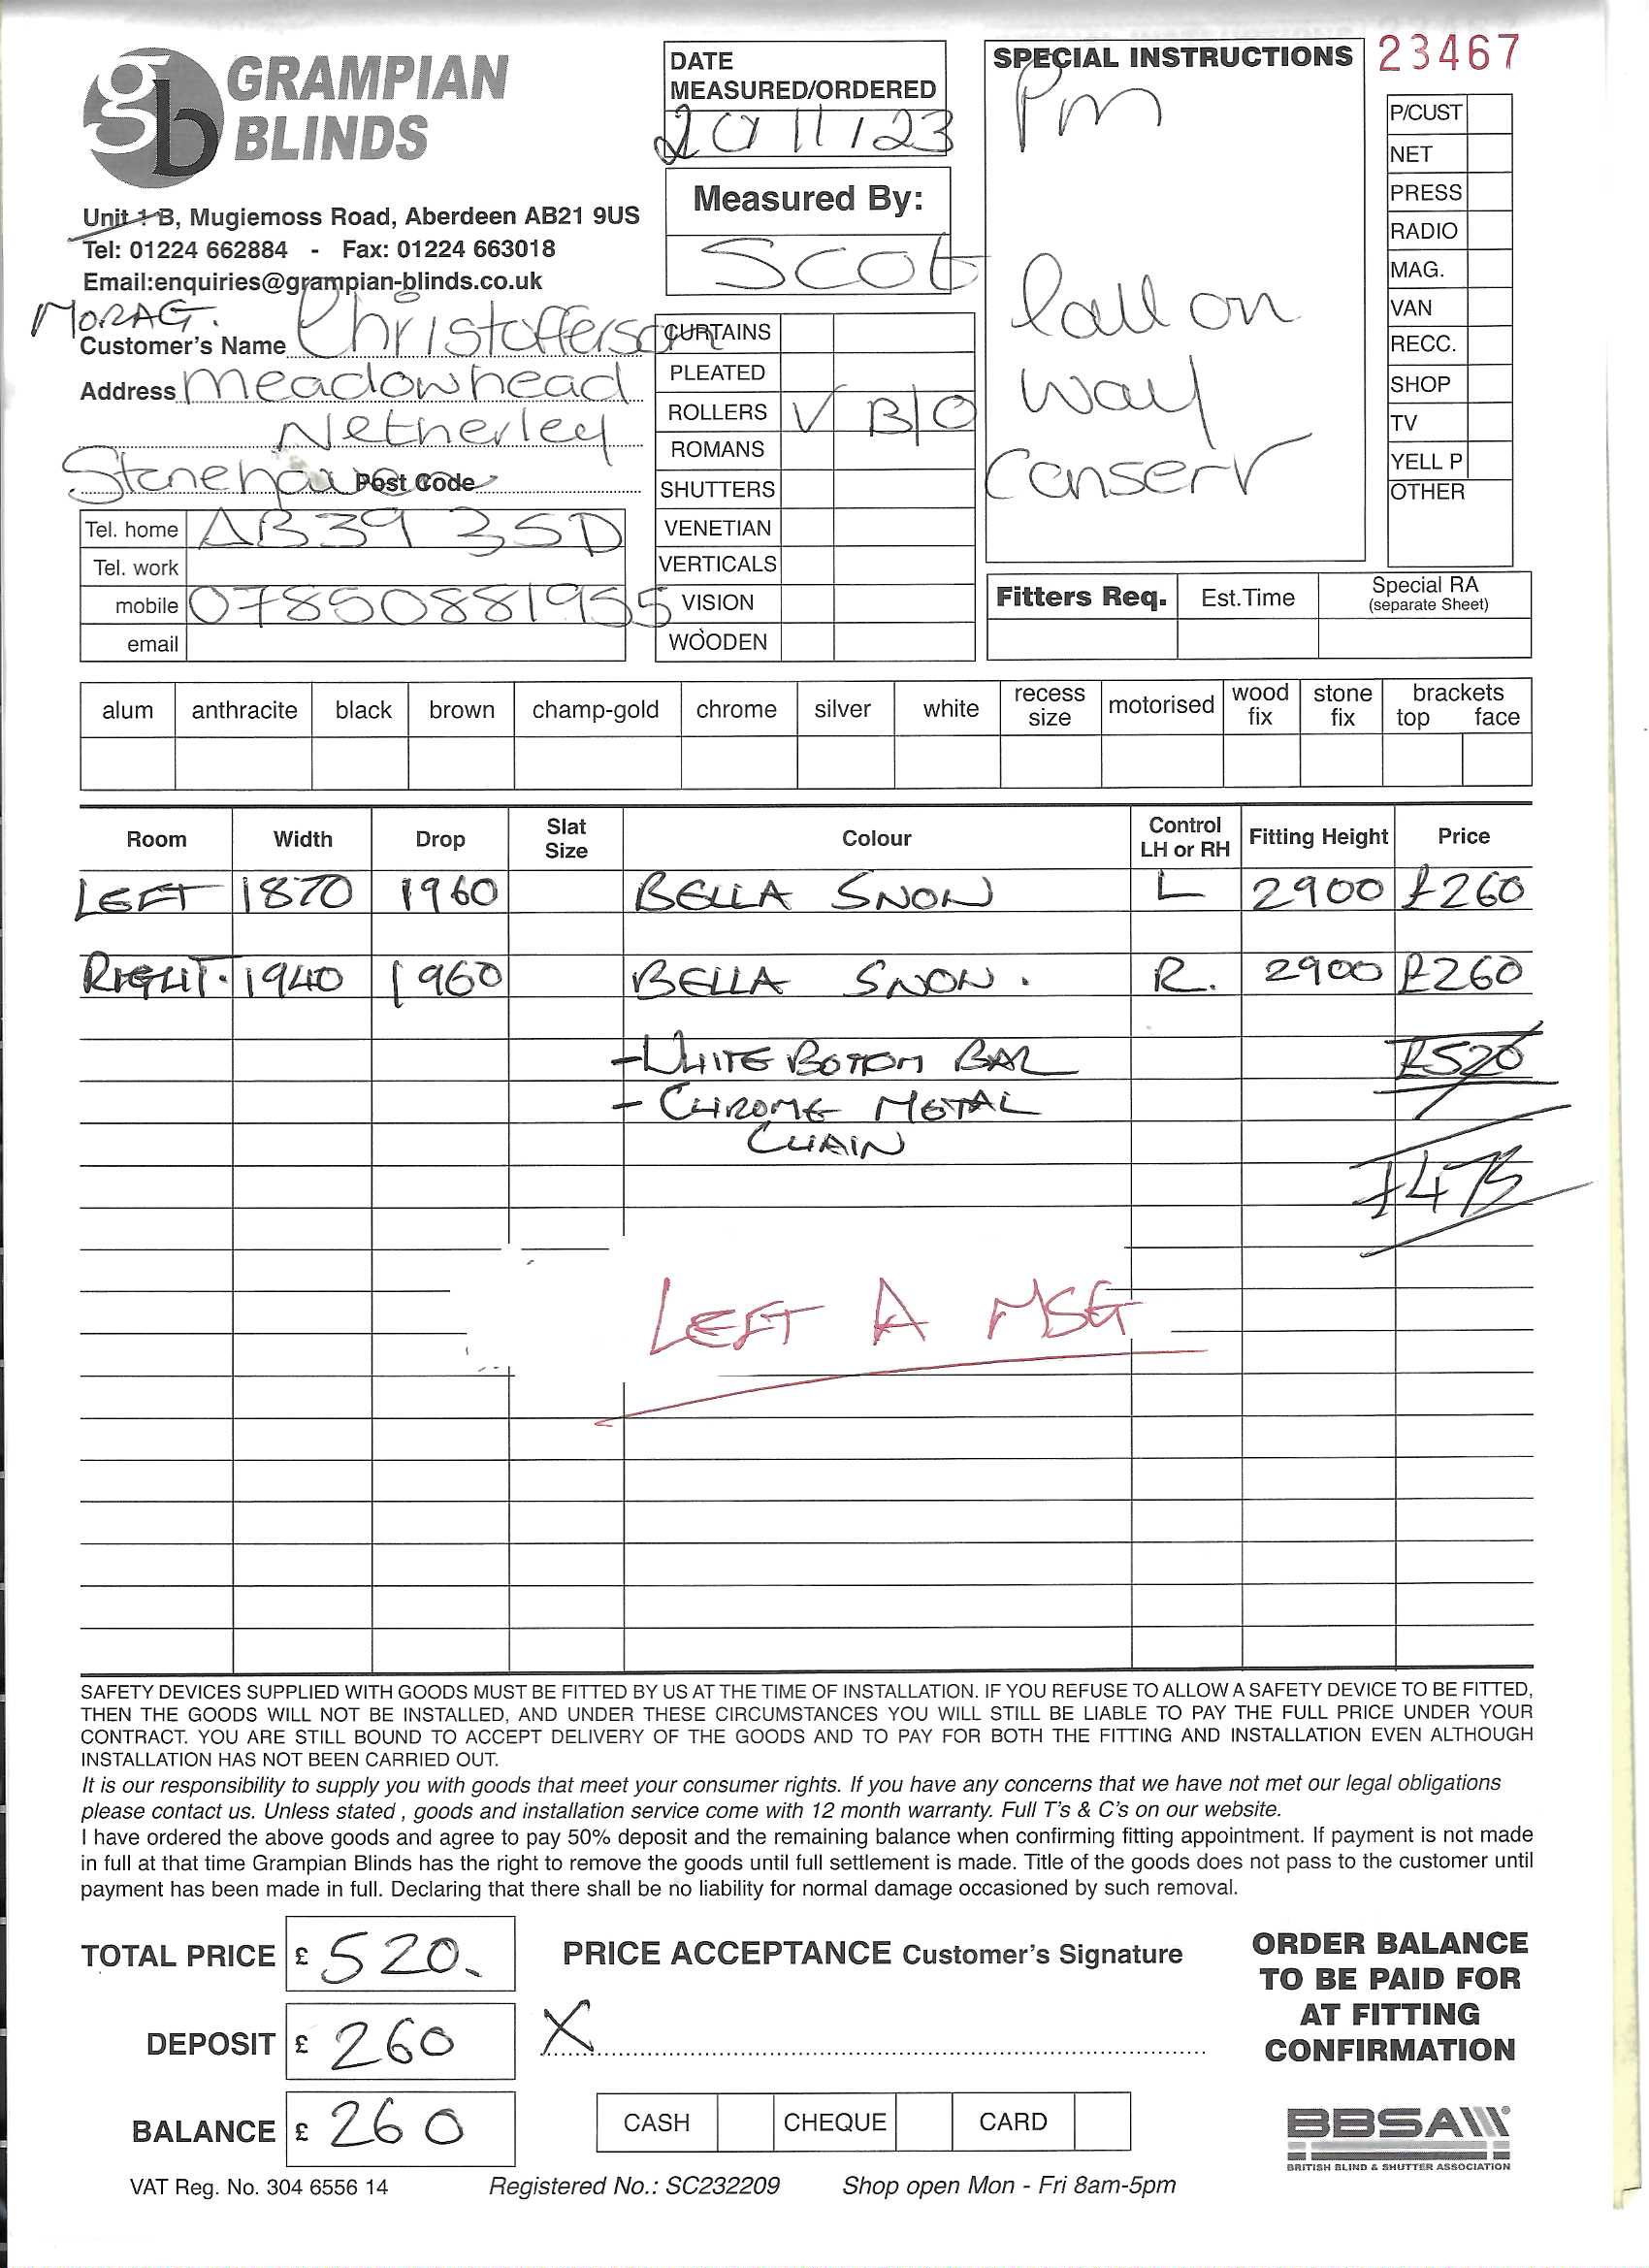 GRAMPIAN
BLINDS
Unit 1 B, Mugiemoss Road, Aberdeen AB21 9US
Tel: 01224 662884 - Fax: 01224 663018
Email:enquiries@grampian-blinds.co.uk
MORAG.
Customer's Name Christofferson
Address Meadowhead
Netherley
Stonehaven Post Code
Tel. home AB39 3SD
Tel. work
mobile 07850881955
email
DATE
MEASURED/ORDERED
20/11/23
Measured By:
Scot
CURTAINS
PLEATED
ROLLERS V B/O
ROMANS
SHUTTERS
VENETIAN
VERTICALS
VISION
WOODEN
SPECIAL INSTRUCTIONS
Pm
Call on
way
Conserv
23467
P/CUST
NET
PRESS
RADIO
MAG.
VAN
RECC.
SHOP
TV
YELL P
OTHER
Fitters Req. Est.Time Special RA
(separate Sheet)
alum anthracite black brown champ-gold chrome silver white recess size motorised wood fix stone fix brackets top face
Room Width Drop Slat Size Colour Control LH or RH Fitting Height Price
LEFT 1870 1960 BELLA SNOW L 2900 £260
RIGHT. 1940 1960 BELLA SNOW. R. 2900 £260
- WHITE BOTTOM BAR £520
- CHROME METAL
CHAIN
£475
LEFT A MSG
SAFETY DEVICES SUPPLIED WITH GOODS MUST BE FITTED BY US AT THE TIME OF INSTALLATION. IF YOU REFUSE TO ALLOW A SAFETY DEVICE TO BE FITTED,
THEN THE GOODS WILL NOT BE INSTALLED, AND UNDER THESE CIRCUMSTANCES YOU WILL STILL BE LIABLE TO PAY THE FULL PRICE UNDER YOUR
CONTRACT. YOU ARE STILL BOUND TO ACCEPT DELIVERY OF THE GOODS AND TO PAY FOR BOTH THE FITTING AND INSTALLATION EVEN ALTHOUGH
INSTALLATION HAS NOT BEEN CARRIED OUT.
It is our responsibility to supply you with goods that meet your consumer rights. If you have any concerns that we have not met our legal obligations
please contact us. Unless stated , goods and installation service come with 12 month warranty. Full T's & C's on our website.
I have ordered the above goods and agree to pay 50% deposit and the remaining balance when confirming fitting appointment. If payment is not made
in full at that time Grampian Blinds has the right to remove the goods until full settlement is made. Title of the goods does not pass to the customer until
payment has been made in full. Declaring that there shall be no liability for normal damage occasioned by such removal.
TOTAL PRICE £ 520.
DEPOSIT £ 260
BALANCE £ 260
PRICE ACCEPTANCE Customer's Signature
X
CASH CHEQUE CARD
ORDER BALANCE
TO BE PAID FOR
AT FITTING
CONFIRMATION
BBSA
BRITISH BLIND & SHUTTER ASSOCIATION
VAT Reg. No. 304 6556 14 Registered No.: SC232209 Shop open Mon - Fri 8am-5pm